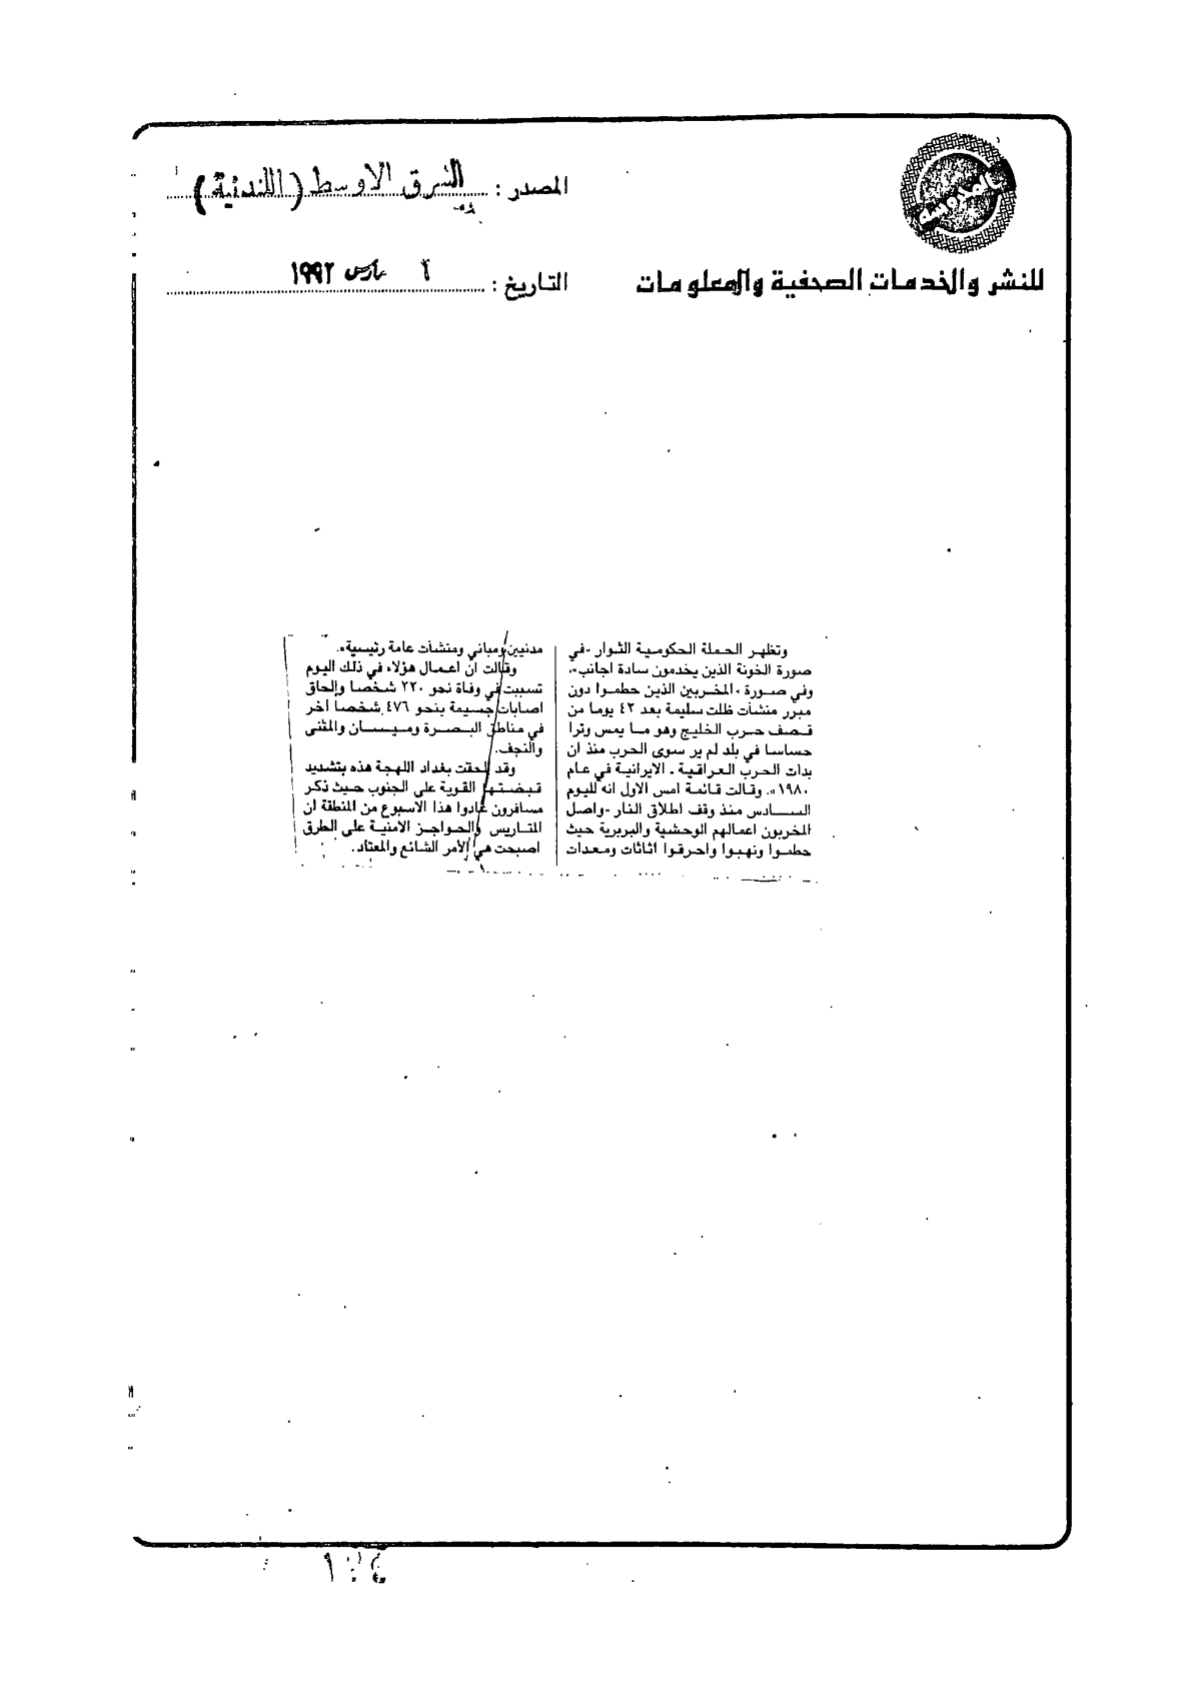 المصدر : الشرق الاوسط (اللندنية)
للنشر والخدمات الصحفية والمعلومات
التاريخ : ٦ مارس ١٩٩٢
وتظهر الحملة الحكومية الثوار -في
صورة الخونة الذين يخدمون سادة اجانب-،
وفي صورة «المخربين الذين حطموا دون
مبرر منشآت ظلت سليمة بعد ٤٢ يوما من
قصف حرب الخليج وهو ما يمس وترا
حساسا في بلد لم ير سوى الحرب منذ ان
بدات الحرب العراقية ـ الايرانية في عام
١٩٨٠». وقالت قائمة امس الاول انه لليوم
السادس منذ وقف اطلاق النار -واصل
المخربون اعمالهم الوحشية والبربرية حيث
حطموا ونهبوا واحرقوا اثاثات ومعدات
مدنيين ومباني ومنشآت عامة رئيسية».
وقالت ان اعمال هؤلاء في ذلك اليوم
تسببت في وفاة نحو ٢٢٠ شخصا والحاق
اصابات جسيمة بنحو ٤٧٦ شخصا آخر
في مناطق البصرة وميسان والمثنى
والنجف.
وقد الحقت بغداد اللهجة هذه بتشديد
قبضتها القوية على الجنوب حيث ذكر
مسافرون عادوا هذا الاسبوع من المنطقة ان
المتاريس والحواجز الامنية على الطرق
اصبحت هي الأمر الشائع والمعتاد.